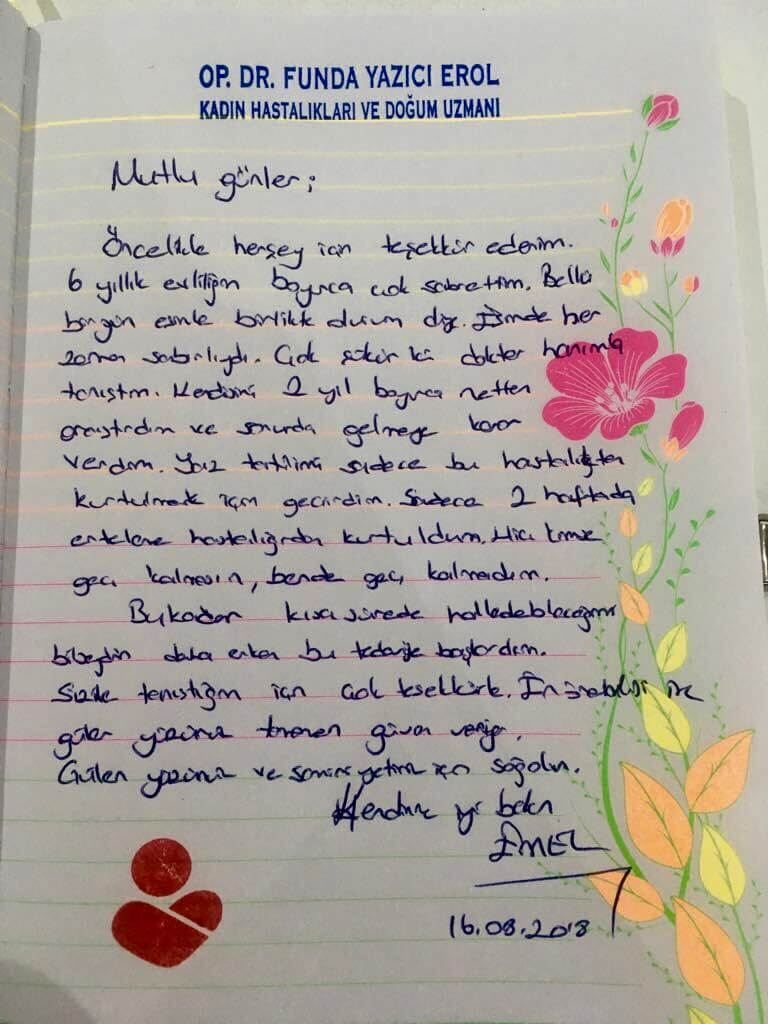 OP. DR. FUNDA YAZICI EROL
KADIN HASTALIKLARI VE DOĞUM UZMANI
Mutlu günler;
Öncelikle herşey için teşekkür ederim.
6 yıllık evliliğim boyunca çok sabrettim. Belki
birgün eşimle birlikte olurum diye. Eşimde her
zaman sabırlıydı. Çok şükür ki doktor hanımla
tanıştım. Kendisini 2 yıl boyunca netten
araştırdım ve sonunda gelmeye karar
verdim. Yaz tatilimi sadece bu hastalıktan
kurtulmak için geçirdim. Sadece 2 haftada
hastalığından kurtuldum. Hiç kimse
geç kalmasın, bende geç kalmadım.
Bukadar kısa sürede halledebileceğimi
bilseydim daha erken bu tedaviye başlardım.
Sizinle tanıştığım için çok teşekkürler. En önemlisi ise
güler yüzünüz tamamen güven veriyor.
Gülen yüzünüz ve samimiyetiniz için sağolun.
Kendinize iyi bakın
EMEL
16.08.2018